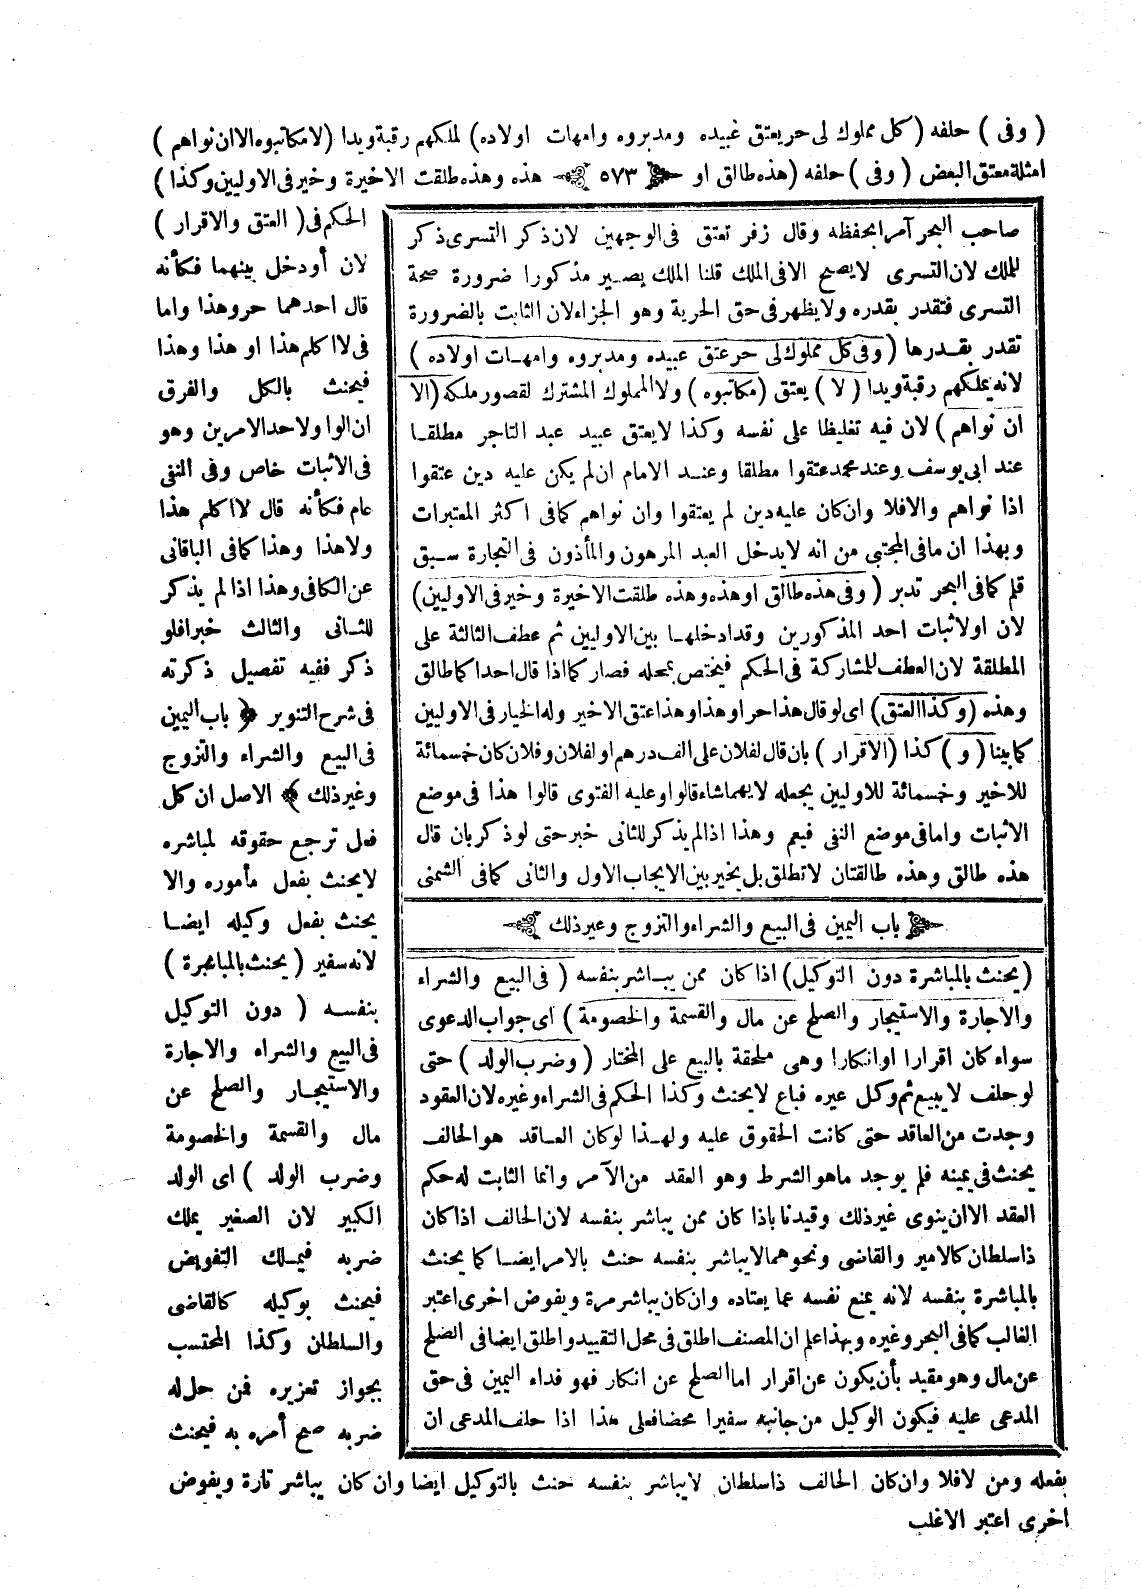 ( وفى ) حلفه ( كل مملوك لى حر يعتق عبيده ومدبروه وامهات اولاده ) لملكهم رقبة ويدا ( لا مكاتبوه الا ان نواهم )
امثلة معتق البعض ( وفى ) حلفه ( هذه طالق او ٥٧٣ هذه وهذه طلقت الاخيرة وخير فى الاوليين وكذا )
صاحب البحر آمرا بحفظه وقال زفر تعتق فى الوجهين لان ذكر التسرى ذكر
للملك لان التسرى لا يصح الا فى الملك قلنا الملك يصير مذكورا ضرورة صحة
التسرى فتقدر بقدره ولا يظهر فى حق الحرية وهو الجزاء لان الثابت بالضرورة
تقدر بقدرها ( وفى كل مملوك لى حر عتق عبيده ومدبروه وامهات اولاده )
لانه يملكهم رقبة ويدا ( لا ) يعتق ( مكاتبوه ) ولا المملوك المشترك لقصور ملكه ( الا
ان نواهم ) لان فيه تغليظا على نفسه وكذا لا يعتق عبيد عبد التاجر مطلقا
عند ابى يوسف وعند محمد عتقوا مطلقا وعند الامام ان لم يكن عليه دين عتقوا
اذا نواهم والا فلا وان كان عليه دين لم يعتقوا وان نواهم كما فى اكثر المعتبرات
وبهذا ان ما فى المجتبى من انه لا يدخل العبد المرهون والمأذون فى التجارة سبق
قلم كما فى البحر تدبر ( وفى هذه طالق او هذه وهذه طلقت الاخيرة وخير فى الاوليين )
لان او لاثبات احد المذكورين وقد ادخلها بين الاوليين ثم عطف الثالثة على
المطلقة لان العطف للمشاركة فى الحكم فيختص بمحله فصار كما اذا قال احدا كما طالق
وهذه ( وكذا العتق ) اى لو قال هذا حر او هذا وهذا عتق الاخير وله الخيار فى الاوليين
كما بينا ( و ) كذا ( الاقرار ) بان قال لفلان على الف درهم او لفلان وفلان كان خمسمائة
للاخير وخمسمائة للاوليين يجعله لايهما شاء قالوا وعليه الفتوى قالوا هذا فى موضع
الاثبات واما فى موضع النفى فيعم وهذا اذا لم يذكر للثانى خبر حتى لو ذكر بان قال
هذه طالق وهذه طالقتان لا تطلق بل يخير بين الايجاب الاول والثانى كما فى الشمنى
باب اليمين فى البيع والشراء والتزوج وغير ذلك
( يحنث بالمباشرة دون التوكيل ) اذا كان ممن يباشر بنفسه ( فى البيع والشراء
والاجارة والاستيجار والصلح عن مال والقسمة والخصومة ) اى جواب الدعوى
سواء كان اقرارا او انكارا وهى ملحقة بالبيع على المختار ( وضرب الولد ) حتى
لو حلف لا يبيع ثم وكل غيره فباع لا يحنث وكذا الحكم فى الشراء وغيره لان العقود
وجدت من العاقد حتى كانت الحقوق عليه ولهذا لو كان العاقد هو الحالف
يحنث فى يمينه فلم يوجد ما هو الشرط وهو العقد من الآمر وانما الثابت له حكم
العقد الا ان ينوى غير ذلك وقيدنا باذا كان ممن يباشر بنفسه لان الحالف اذا كان
ذا سلطان كالامير والقاضى ونحوهما لا يباشر بنفسه حنث بالامر ايضا كما يحنث
بالمباشرة بنفسه لانه يمنع نفسه عما يعتاده وان كان يباشر مرة ويفوض اخرى اعتبر
الغالب كما فى البحر وغيره وبهذا علم ان المصنف اطلق فى محل التقييد واطلق ايضا فى الصلح
عن مال وهو مقيد بأن يكون عن اقرار اما الصلح عن انكار فهو فداء اليمين فى حق
المدعى عليه فيكون الوكيل من جانبه سفيرا محضا فعلى هذا اذا حلف المدعى ان
الحكم فى ( العتق والاقرار )
لان أو دخل بينهما فكأنه
قال احدهما حر وهذا واما
فى لا اكلم هذا او هذا وهذا
فيحنث بالكل والفرق
ان الوا ولاحد الامرين وهو
فى الاثبات خاص وفى النفى
عام فكأنه قال لا اكلم هذا
ولا هذا وهذا كما فى الباقانى
عن الكافى وهذا اذا لم يذكر
للثانى والثالث خبرا فلو
ذكر ففيه تفصيل ذكرته
فى شرح التنوير ﴿ باب اليمين
فى البيع والشراء والتزوج
وغير ذلك ﴾ الاصل ان كل
فعل ترجع حقوقه لمباشره
لا يحنث بفعل مأموره والا
يحنث بفعل وكيله ايضا
لانه سفير ( يحنث بالمباشرة )
بنفسه ( دون التوكيل
فى البيع والشراء والاجارة
والاستيجار والصلح عن
مال والقسمة والخصومة
وضرب الولد ) اى الولد
الكبير لان الصغير يملك
ضربه فيملك التفويض
فيحنث بوكيله كالقاضى
والسلطان وكذا المحتسب
بجواز تعزيره فمن حل له
ضربه صح أمره به فيحنث
بفعله ومن لا فلا وان كان الحالف ذا سلطان لا يباشر بنفسه حنث بالتوكيل ايضا وان كان يباشر تارة ويفوض
اخرى اعتبر الاغلب